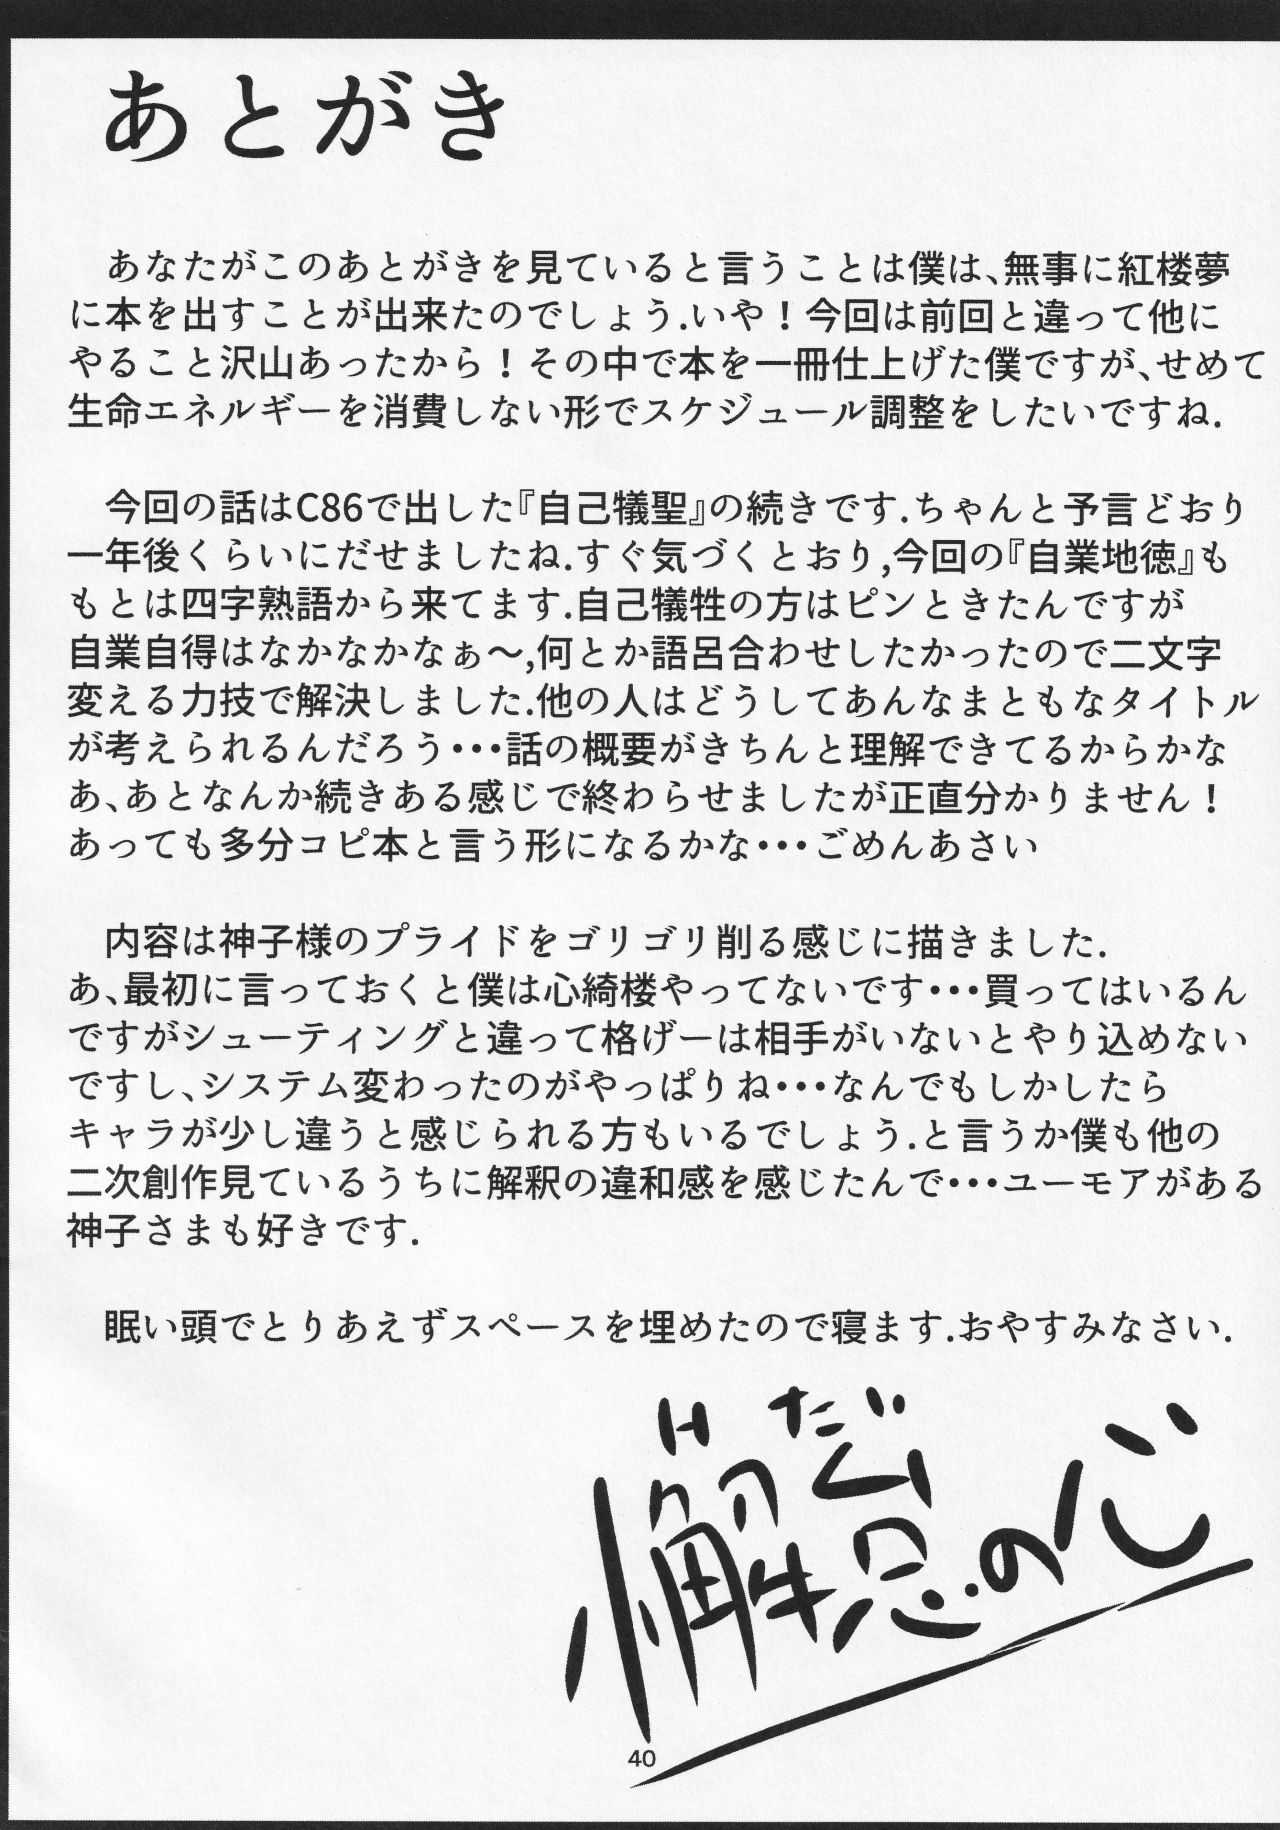 あとがき
あなたがこのあとがきを見ていると言うことは僕は、無事に紅楼夢
に本を出すことが出来たのでしょう.いや！今回は前回と違って他に
やること沢山あったから！その中で本を一冊仕上げた僕ですが、せめて
生命エネルギーを消費しない形でスケジュール調整をしたいですね.
今回の話はC86で出した『自己犠聖』の続きです.ちゃんと予言どおり
一年後くらいにだせましたね.すぐ気づくとおり,今回の『自業地徳』も
もとは四字熟語から来てます.自己犠牲の方はピンときたんですが
自業自得はなかなかなぁ～,何とか語呂合わせしたかったので二文字
変える力技で解決しました.他の人はどうしてあんなまともなタイトル
が考えられるんだろう・・・話の概要がきちんと理解できてるからかな
あ、あとなんか続きある感じで終わらせましたが正直分かりません！
あっても多分コピ本と言う形になるかな・・・ごめんあさい
内容は神子様のプライドをゴリゴリ削る感じに描きました.
あ、最初に言っておくと僕は心綺楼やってないです・・・買ってはいるん
ですがシューティングと違って格げーは相手がいないとやり込めない
ですし、システム変わったのがやっぱりね・・・なんでもしかしたら
キャラが少し違うと感じられる方もいるでしょう.と言うか僕も他の
二次創作見ているうちに解釈の違和感を感じたんで・・・ユーモアがある
神子さまも好きです.
眠い頭でとりあえずスペースを埋めたので寝ます.おやすみなさい.
けたい
懈怠の心
40